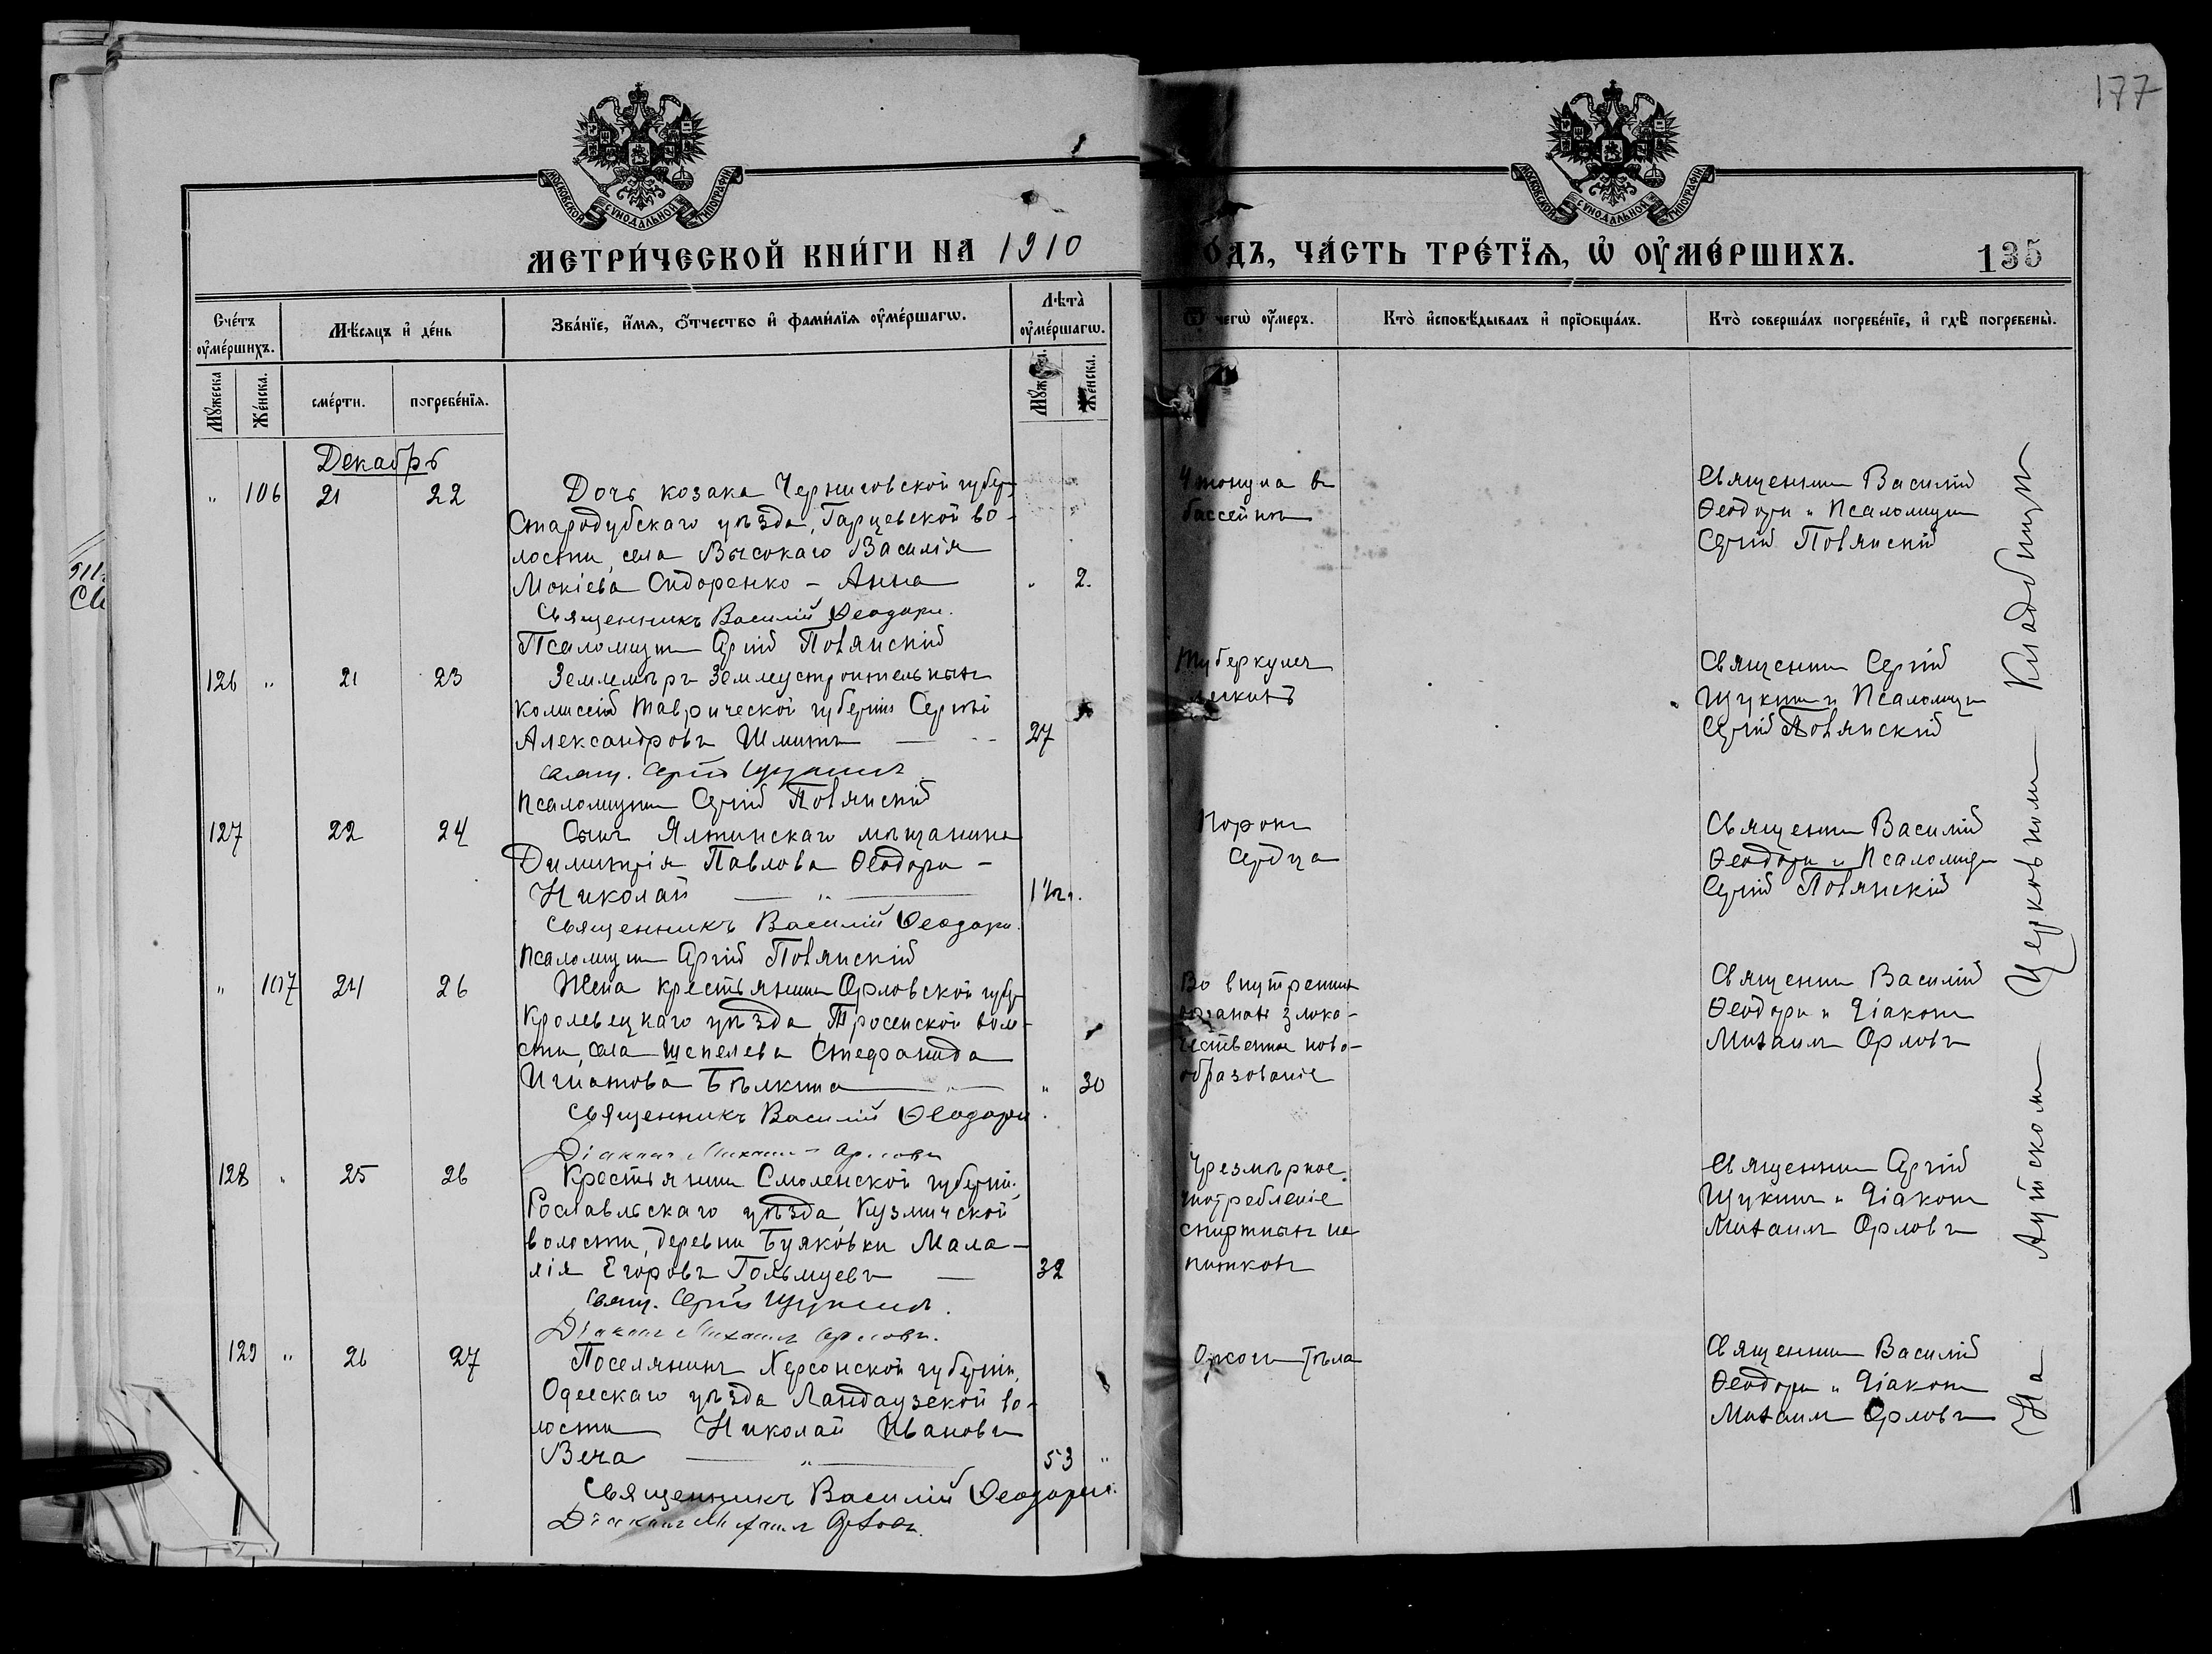 177
МОСКОВСКОЙ СѴНОДАЛЬНОЙ ТИПОГРАФІИ
МОСКОВСКОЙ СѴНОДАЛЬНОЙ ТИПОГРАФІИ
МЕТРИ́ЧЕСКОЙ КНИ́ГИ НА 1910
О́ДЪ, ЧА́СТЬ ТРЕ́ТЇѦ, Ѡ҆ ОУ҆МЕ́РШИХЪ. 135
Сче́тъ оу҆ме́ршихъ.
Мѣ́сяцъ и҆ де́нь
Зва́нїе, и҆́мѧ, ѻ҆́тчество и҆ фами́лїѧ оу҆ме́ршагѡ.
Лѣта̀ оу҆ме́ршагѡ.
Ѿ чегѡ̀ оу҆́меръ.
Кто̀ и҆сповѣ́дывалъ и҆ прїѡбща́лъ.
Кто̀ соверша́лъ погребе́нїе, и҆ гдѣ̀ погребены̀.
Мꙋ́жеска
Же́нска.
сме́рти.
погребе́нїѧ.
Мꙋж
Же́нска.
Декабрь
" 106 21 22
Дочь козака Черниговской губер.
Стародубскаго уѣзда, Гарцевской во-
лости, села Высокаго Василія
Мокіева Сидоренко – Анна " 2.
Священникъ Василій Ѳеодори.
Псаломщик Сергій Повянскій
Утонула в
бассейнѣ
Священник Василій
Ѳеодори и Псаломщик
Сергій Повянскій
126 " 21 23
Землемѣръ Землеустроительных
комиссій Таврической губерніи Сергѣй
Александровъ Шмитъ — 27
свящ. Сергій Щукинъ
Псаломщик Сергій Повянскій
Туберкулез
легкихъ
Священник Сергій
Щукин и Псаломщик
Сергій Повянскій
127 22 24
Сынъ Ялтинскаго мѣщанина
Димитрія Павлова Ѳеодори –
Николай — " — 1½ г.
Священникъ Василій Ѳеодори.
Псаломщик Сергій Повянскій
Порок
сердца
Священник Василій
Ѳеодори и Псаломщик
Сергій Повянскій
" 107 24 26
Жена крестьянина Орловской губер
Кромецкаго уѣзда, Тросенской воло-
сти, села Шепелева Стефанида
Игнатова Бѣлкина — " 30
Священникъ Василій Ѳеодори.
Діаконъ Михаилъ Орловъ
Во внутренних
органах злока-
чественное ново-
образованіе
Священник Василій
Ѳеодори и Діакон
Михаил Орловъ
128 " 25 26
Крестьянин Смоленской губерніи,
Рославльскаго уѣзда, Кузмичской
волости, деревни Буяковки Мала-
хія Егоровъ — 32
свящ. Сергій Щукинъ.
Діаконъ Михаилъ Орловъ.
Чрезмѣрное
употребленіе
спиртных на
питков
Священник Сергій
Щукинъ и Діакон
Михаил Орловъ
129 " 26 27
Поселянинъ Херсонской губерніи,
Одесскаго уѣзда Ландаузской во-
лости Николай Ивановъ
Веча — " — 53 "
Священникъ Василій Ѳеодори.
Діаконъ Михаилъ Орловъ.
Ожог тѣла
Священник Василій
Ѳеодори и Діакон
Михаил Орловъ
На Аутском Церковном Кладбищѣ